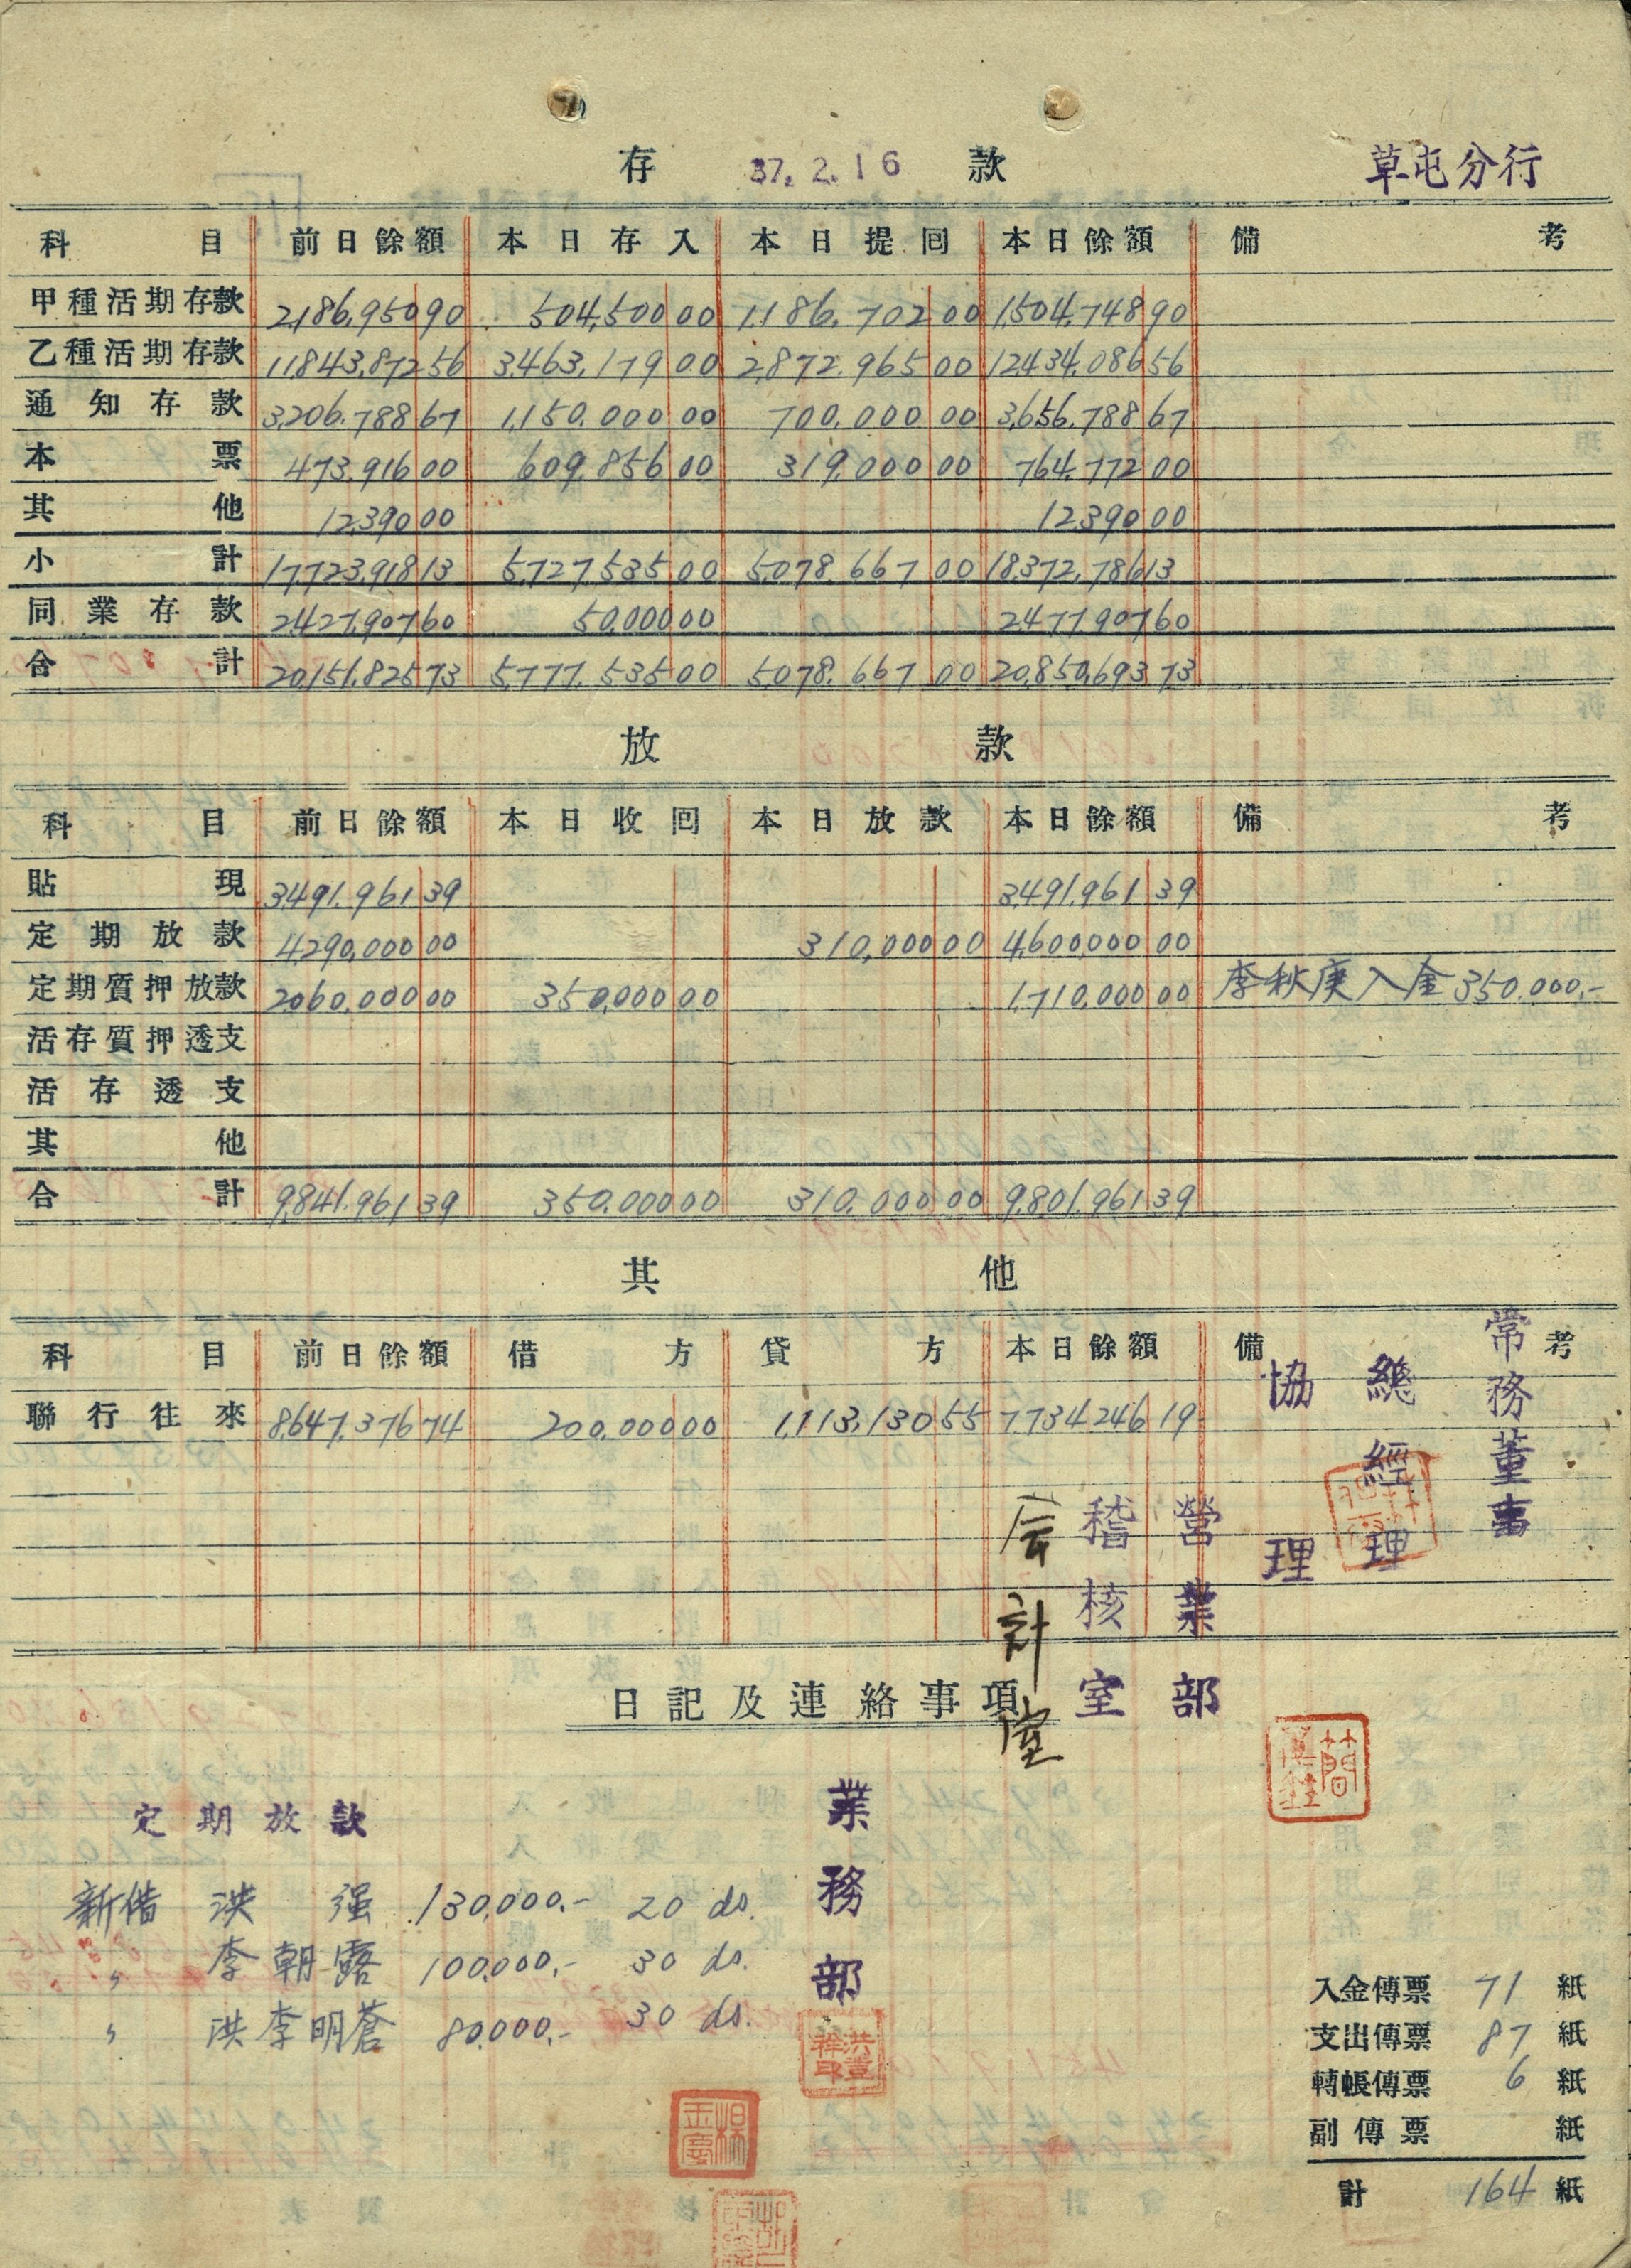 草屯分行
存 37.2.16 款
科目 前日餘額 本日存入 本日提回 本日餘額 備考
甲種活期存款 2,186,950 90 504,500 00 1,186,702 00 1,504,748 90
乙種活期存款 11,843,872 56 3,463,179 00 2,872,965 00 12,434,086 56
通知存款 3,206,788 67 1,150,000 00 700,000 00 3,656,788 67
本票 473,916 00 609,856 00 319,000 00 764,772 00
其他 12,390 00 12,390 00
小計 17,723,918 13 5,727,535 00 5,078,667 00 18,372,786 13
同業存款 2,427,907 60 50,000 00 2,477,907 60
合計 20,151,825 73 5,777,535 00 5,078,667 00 20,850,693 73
放款
科目 前日餘額 本日收回 本日放款 本日餘額 備考
貼現 3,491,961 39 3,491,961 39
定期放款 4,290,000 00 310,000 00 4,600,000 00
定期質押放款 2,060,000 00 350,000 00 1,710,000 00 李秋庚入金350,000.-
活存質押透支
活存透支
其他
合計 9,841,961 39 350,000 00 310,000 00 9,801,961 39
其他
科目 前日餘額 借方 貸方 本日餘額 備考
聯行往來 8,647,376 74 200,000 00 1,113,130 55 7,734,246 19
常務董事
總經理
協理
營業部
稽核室
會計室
日記及連絡事項
業務部
定期放款
新借 洪強 130,000.- 20 ds.
〃 李朝露 100,000.- 30 ds.
〃 洪李明蒼 80,000.- 30 ds.
入金傳票 71 紙
支出傳票 87 紙
轉帳傳票 6 紙
副傳票 紙
計 164 紙